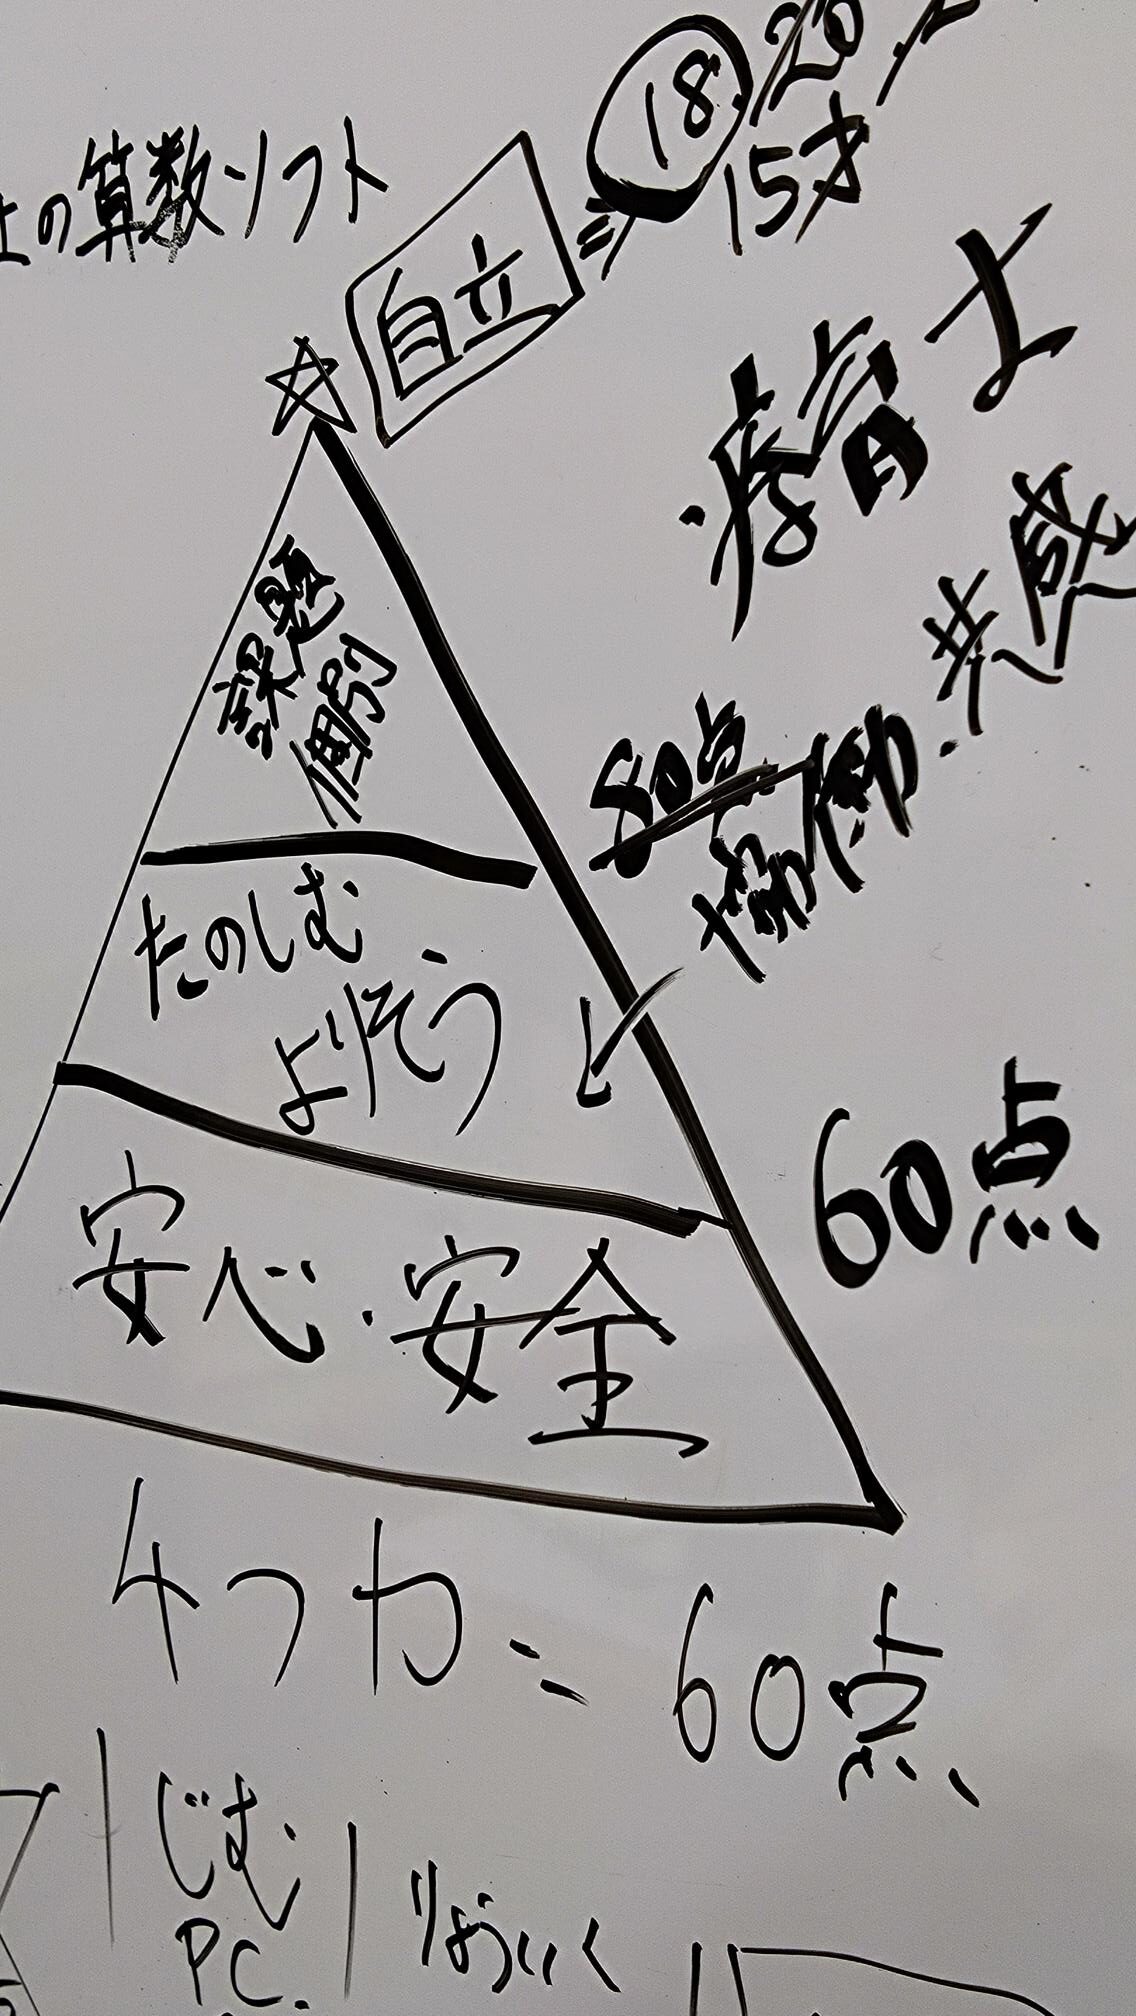 18. 20.
の算数ソフト
15才
自立 =
療育士
課題
個別
・共感
80点
協働
たのしむ、
よりそう
60点
安心・安全
4つ力 = 60点
じむ
PC.
りょういく